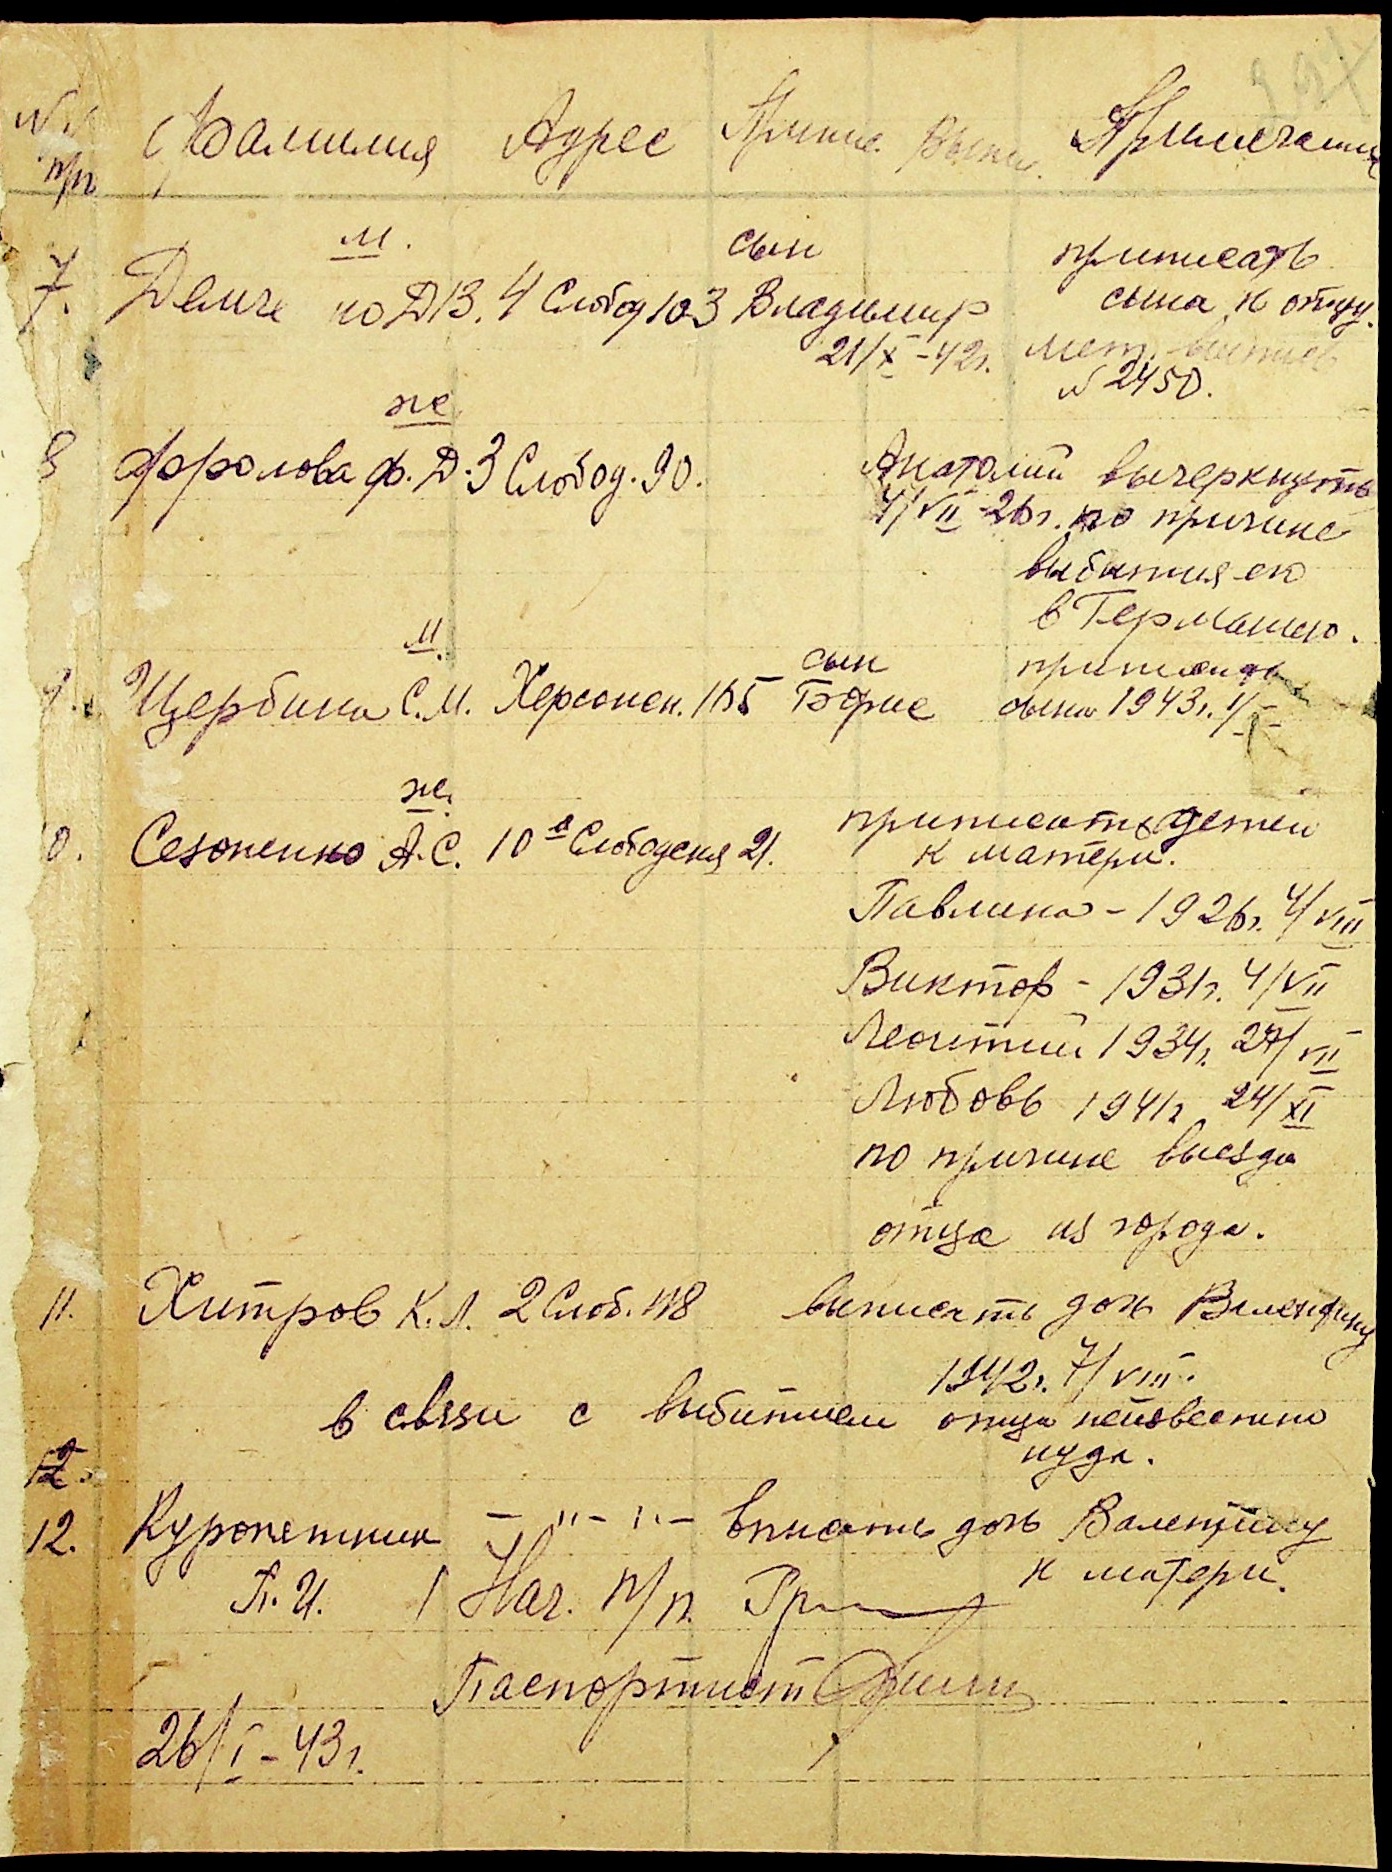 № пр. Фамилия Адрес Припис. Выпис. Примечание
м. сын приписать
7. Демче 4 Слобод 103 Владимир сына к отцу.
21/X-42г. мет. выпись
№ 2450.
же
8 Фролова Ф. Д. 3 Слобод. 90. Анатолий вычеркнуть
4/VII 26г. по причине
выбытия его
в Германию.
м. сын приписать
9. Щербина С.М. Херсонск. 155 Борис сына 1943г. 1/I
же.
0. Сезоненко А.С. 10я Слободская 21. приписать детей
к матери.
Павлина - 1926г. 4/VIII
Виктор - 1931г. 4/VII
Леонтий 1934г. 27/VII
Любовь 1941г 24/XI
по причине выезда
отца из города.
11. Хитров К.Л. 2 Слоб. 118 выписать дочь Валентину
1942г. 7/VIII.
в связи с выбытием отца неизвестно
куда.
12.
12. Куропетник - " - " - вписать дочь Валентину
П.И. к матери.
Нач. п/п.
Паспортист
26/I-43г.